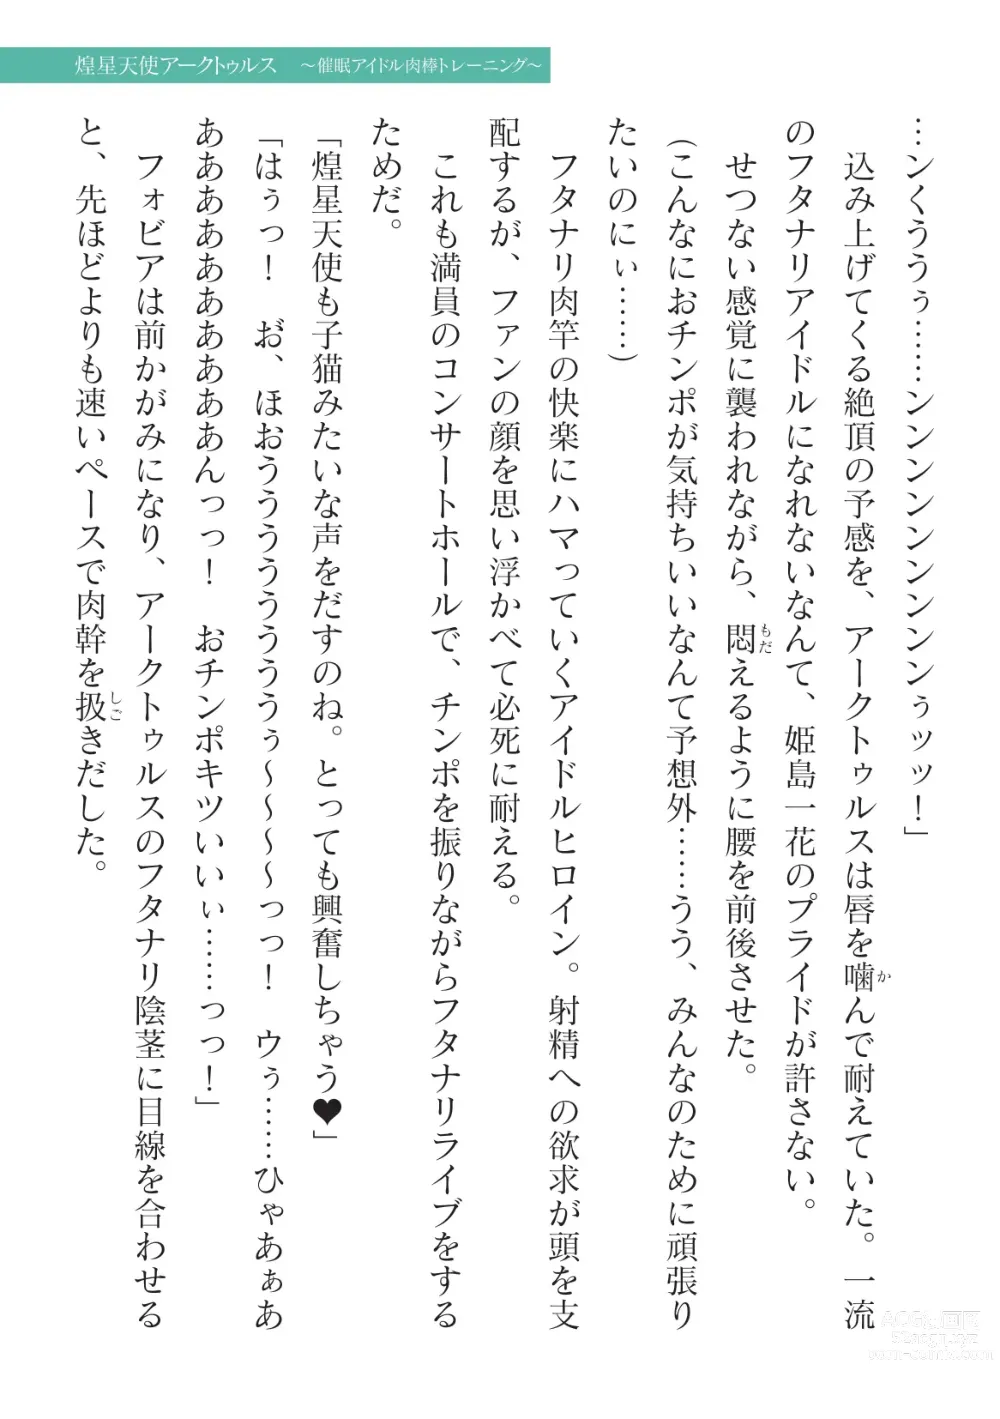 煌星天使アークトゥルス　～催眠アイドル肉棒トレーニング～
…ンくううぅ……ンンンンンンンンンぅッッ！」
　込み上げてくる絶頂の予感を、アークトゥルスは唇を噛かんで耐えていた。一流
のフタナリアイドルになれないなんて、姫島一花のプライドが許さない。
　せつない感覚に襲われながら、悶もだえるように腰を前後させた。
（こんなにおチンポが気持ちいいなんて予想外……うう、みんなのために頑張り
たいのにぃ……）
　フタナリ肉竿の快楽にハマっていくアイドルヒロイン。射精への欲求が頭を支
配するが、ファンの顔を思い浮かべて必死に耐える。
　これも満員のコンサートホールで、チンポを振りながらフタナリライブをする
ためだ。
「煌星天使も子猫みたいな声をだすのね。とっても興奮しちゃう♥」
「はぅっ！　お゛、ほおうううううううぅ～～～～っっ！　ウぅ……ひゃあぁあ
ああああああああああんっっ！　おチンポキツいいぃ……っっ！」
　フォビアは前かがみになり、アークトゥルスのフタナリ陰茎に目線を合わせる
と、先ほどよりも速いペースで肉幹を扱しごきだした。